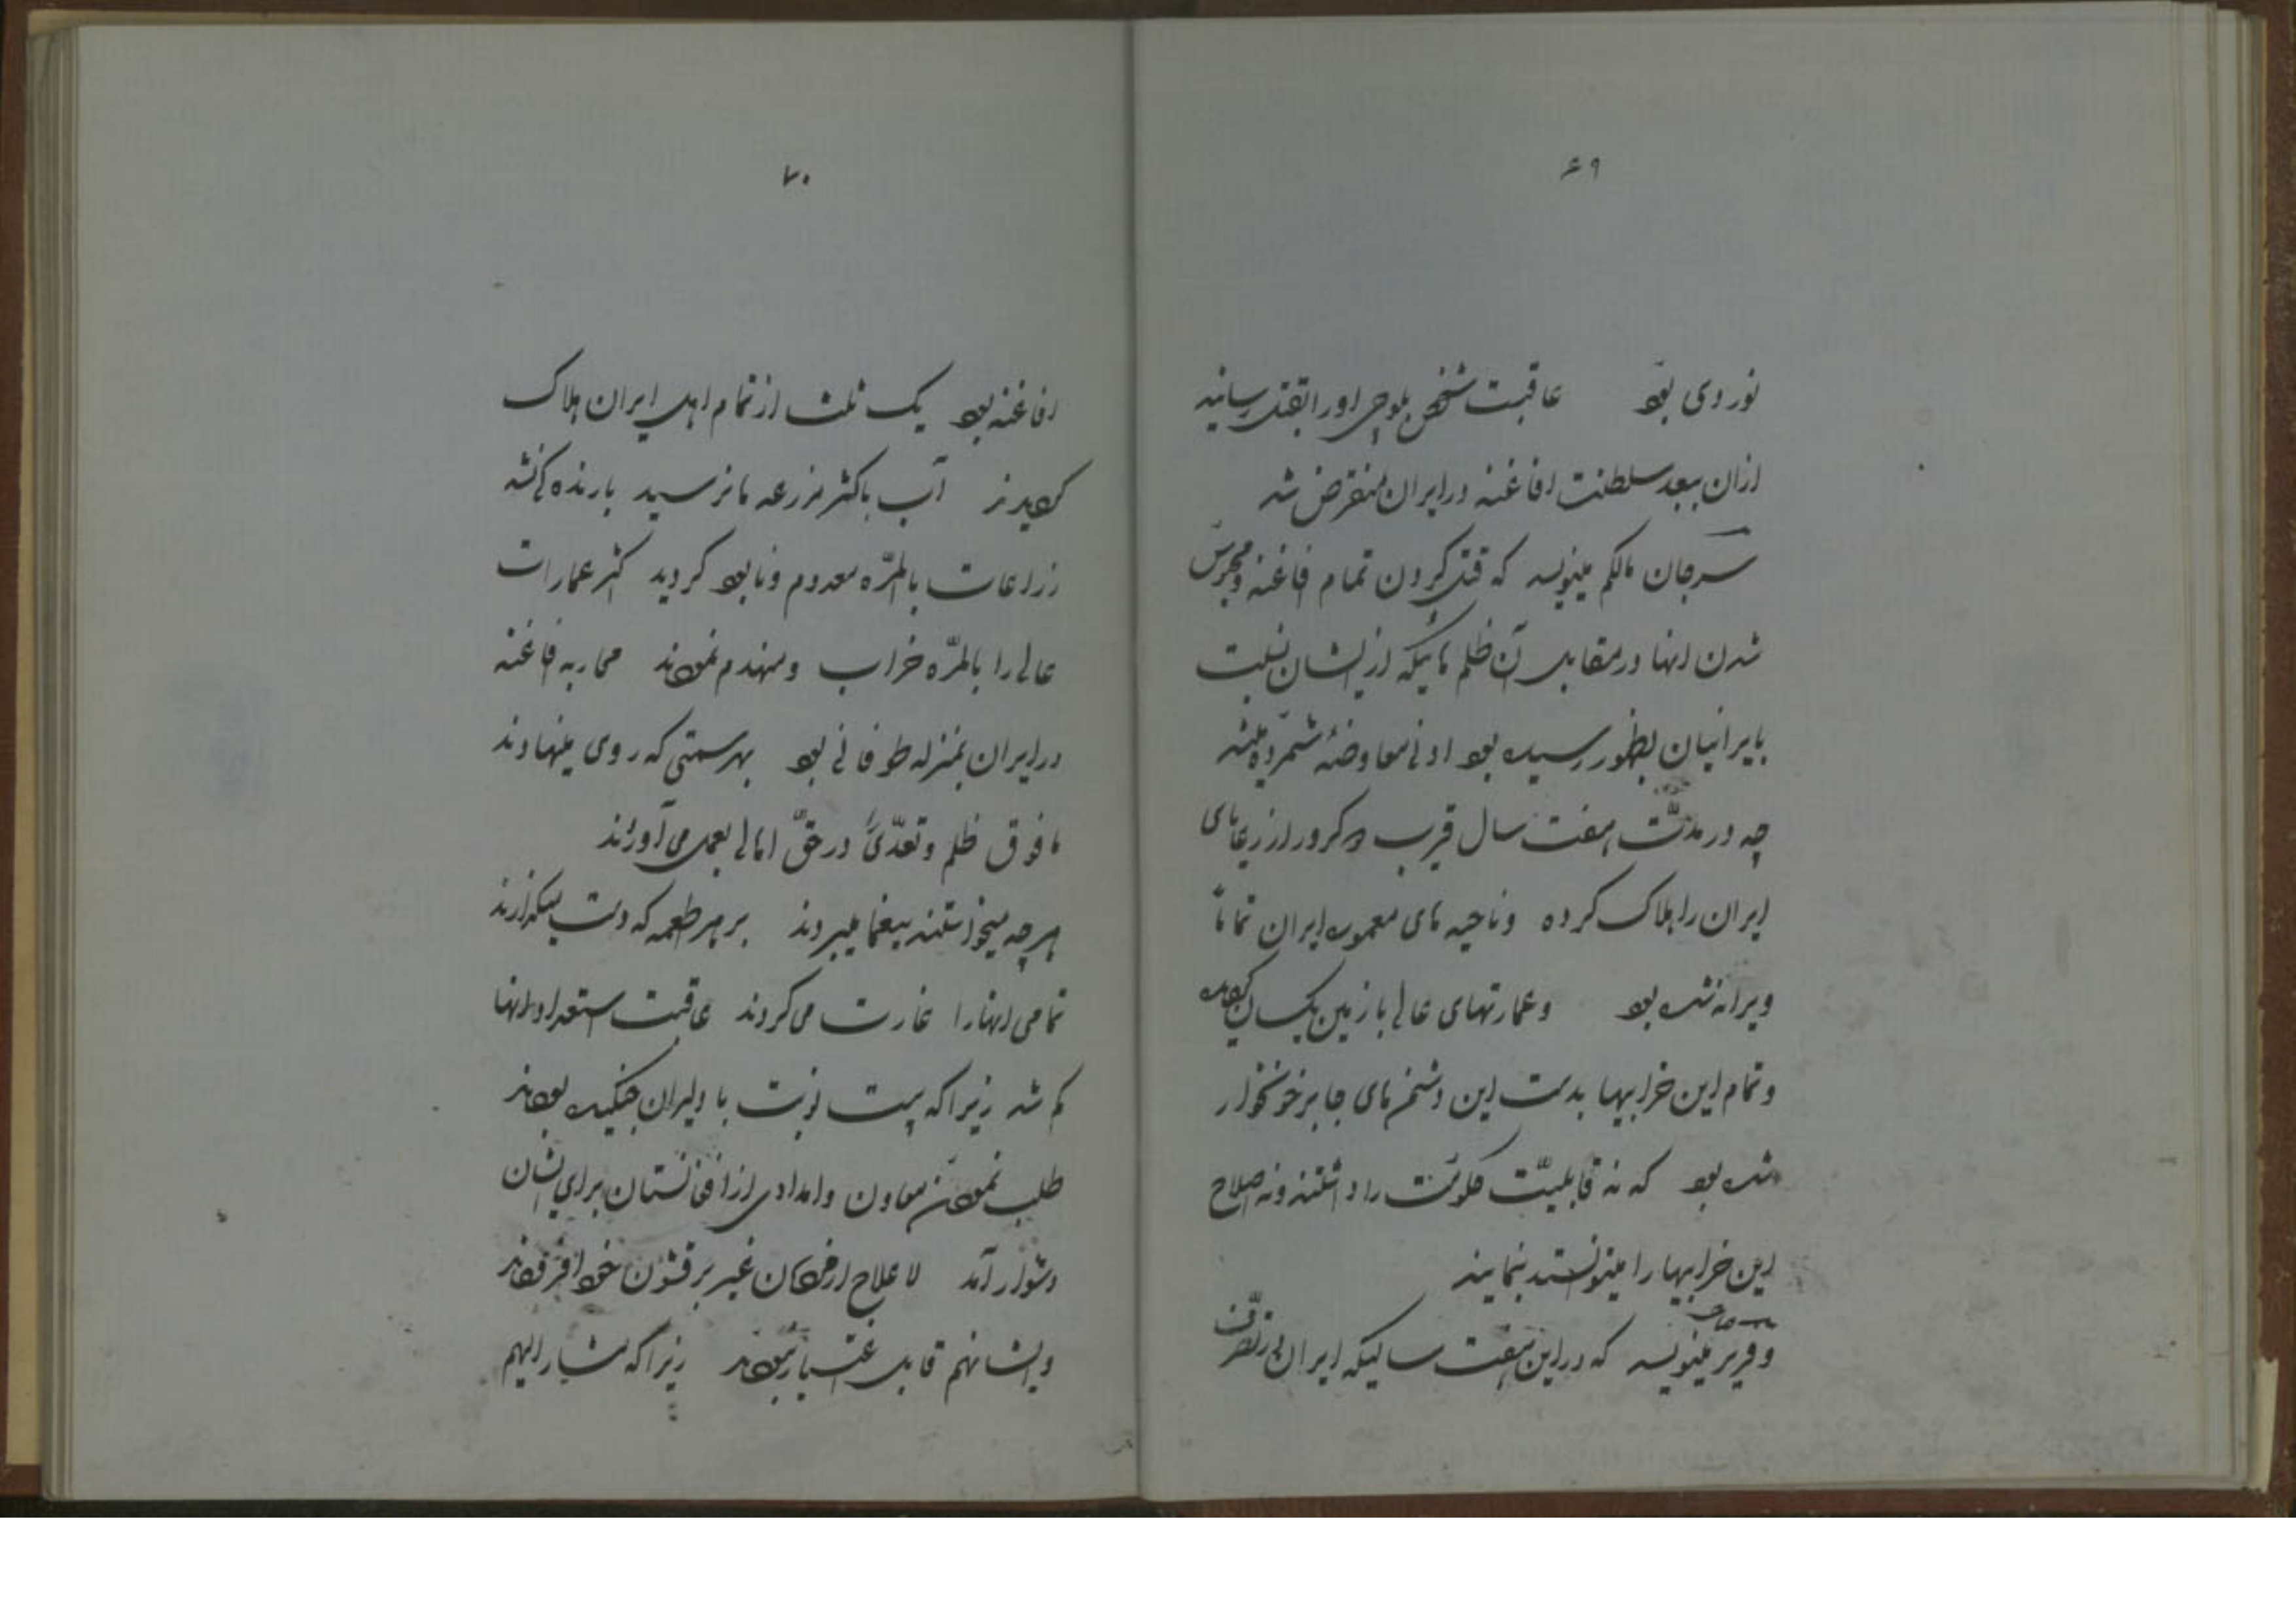 ۶۹
نوردی بود عاقبت شخص بلوچی اورا بقتل رسانید
ازان ببعد سلطنت افاغنه در ایران منقرض شد
سرجان مالکم مینویسد که قتل کردن تمام افاغنه و
شدن انها در مقابل آن ظلم هائیکه از ایشان نسبت
بایرانیان بظهور رسیده بود ادنی معاوضهٔ شمرده میشد
چه در مدّت هفت سال قریب کرور از رعایای
ایران را هلاک کرده و ناحیه های معموره ایران تماماً
ویرانه شده بود و عمارتهای عالی با زمین یکسان کردیده
و تمام این خرابیها بدست این دشمن های جابر خونخوار
شده بود که نه قابلیّت حکومت را داشتند و نه اصلاح
این خرابیها را میتوانستند بنمایند
و فریر صاحب مینویسد که در این هفت سالیکه ایران در تصرّف
۷۰
افاغنه بود یک ثلث از تمام اهل ایران هلاک
کردیدند آب باکثر مزرعه ها نرسید بارنده کی نشد
زراعات بالمرّه معدوم و نابود کردید اکثر عمارات
عالی را بالمرّه خراب و منهدم نمودند محاربه افاغنه
در ایران بمنزله طوفانی بود بهر سمتی که روی مینهادند
مافوق ظلم و تعدّی در حقّ اهالی بعمل می آوردند
هرچه میخواستند بیغما میبردند بر هر طعمه که دست میکذارند
تمامی انهارا غارت می کردند عاقبت استعداد انها
کم شد زیرا که بیست نوبت با دلیران جنکیده بودند
طلب نمودن معاون و امدادی از افغانستان برای ایشان
دشوار آمد لاعلاج از مردمان غیر بر قشون خود افزودند
و ایشانهم قابل اعتبار نبودند زیرا که مشار الیهم